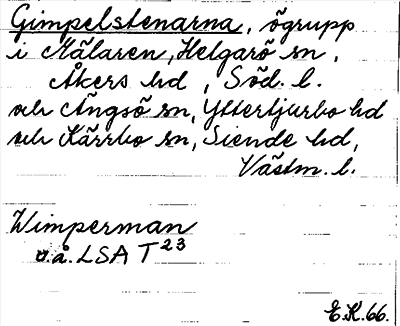 Gimpelstenarna, ögrupp
i Mälaren, Helgarö sn,
Åkers hd, Söd. l.
och Ängsö sn, Yttertjurbo hd
och Kärrbo sn, Siende hd,
Västm. l.
Wimperman
o.å. LSA T 23
E.K. 66.